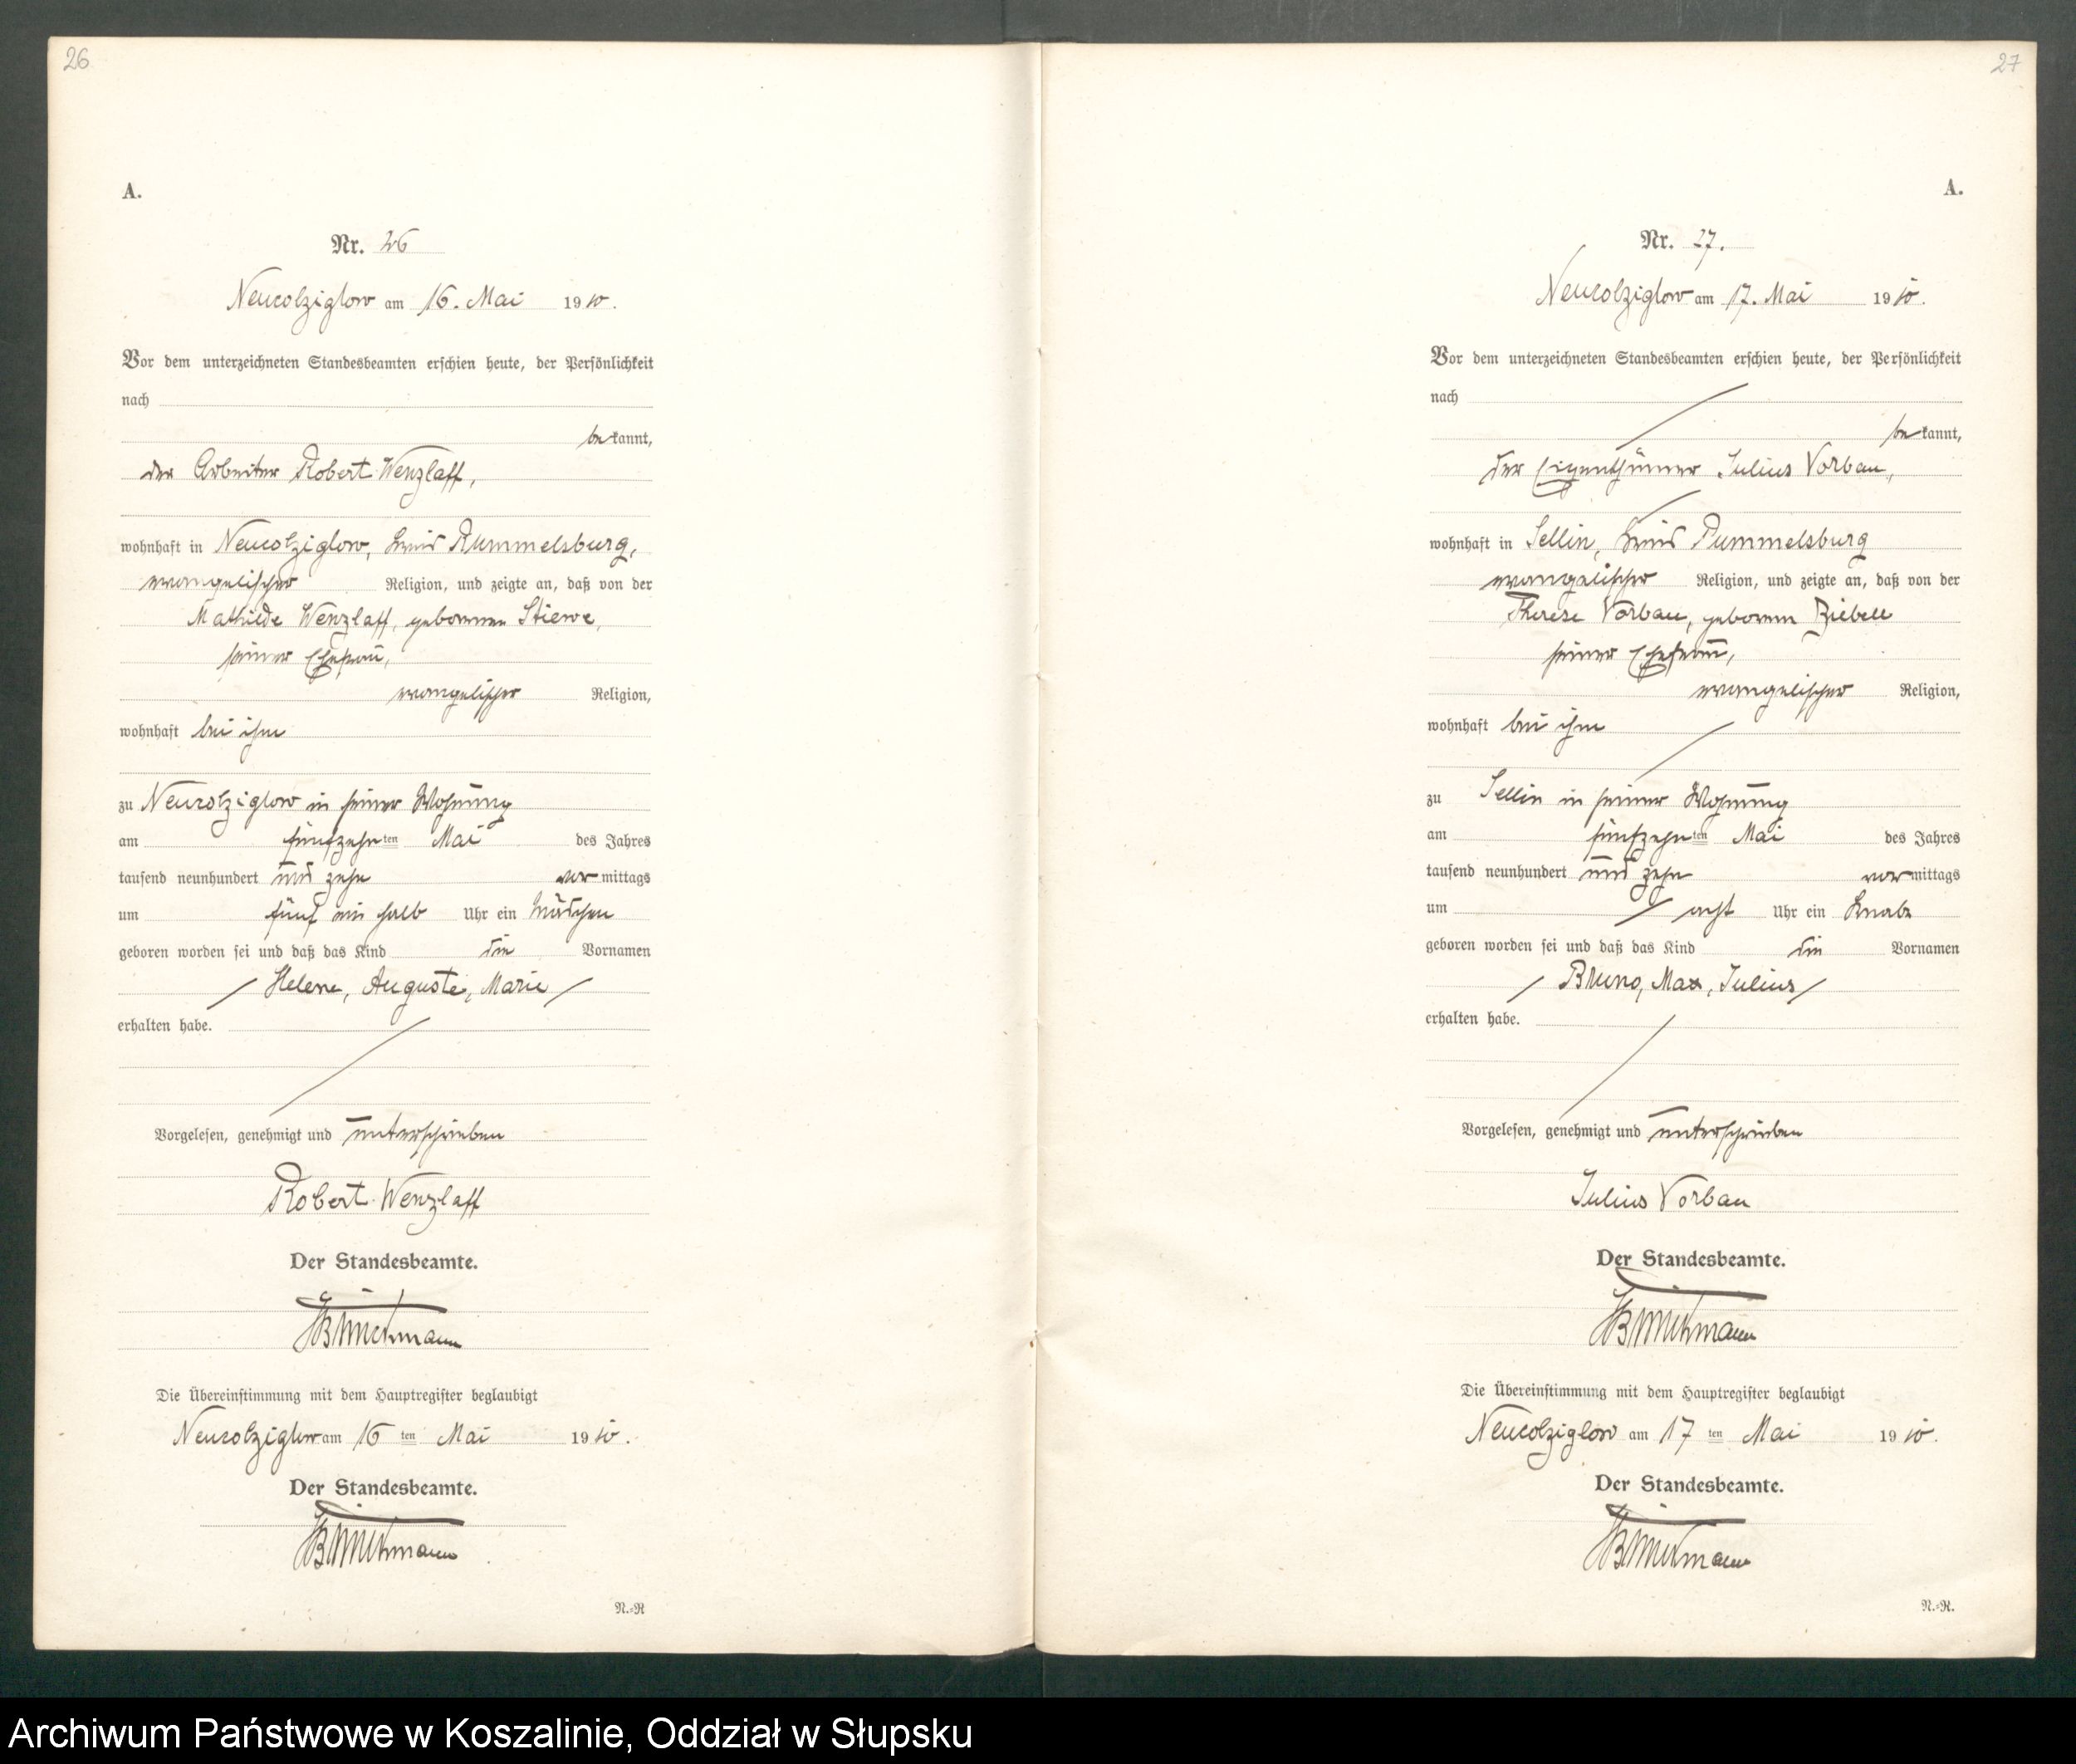 26
A.
Nr. 26
Neukolziglow am 16. Mai 1910.
Vor dem unterzeichneten Standesbeamten erschien heute, der Persönlichkeit
nach
be kannt,
der Arbeiter Robert Wenzlaff,
wohnhaft in Neukolziglow, Kreis Rummelsburg,
evangelischer Religion, und zeigte an, daß von der
Mathilde Wenzlaff, geborenen Stiewe,
seiner Ehefrau,
evangelischer Religion,
wohnhaft bei ihm
zu Neukolziglow in seiner Wohnung
am fünfzehn ten Mai des Jahres
tausend neunhundert und zehn vor mittags
um fünf ein halb Uhr ein Mädchen
geboren worden sei und daß das Kind die Vornamen
/ Helene, Auguste, Marie /
erhalten habe.
Vorgelesen, genehmigt und unterschrieben
Robert Wenzlaff
Der Standesbeamte.
Die Übereinstimmung mit dem Hauptregister beglaubigt
Neukolziglow am 16 ten Mai 1910.
Der Standesbeamte.
N.=R
27
A.
Nr. 27.
Neukolziglow am 17. Mai 1910.
Vor dem unterzeichneten Standesbeamten erschien heute, der Persönlichkeit
nach
be kannt,
der Eigenthümer Julius Vorbau,
wohnhaft in Sellin, Kreis Rummelsburg
evangelischer Religion, und zeigte an, daß von der
Therese Vorbau, geborenen Ziebell
seiner Ehefrau,
evangelischer Religion,
wohnhaft bei ihm
zu Sellin in seiner Wohnung
am fünfzehn ten Mai des Jahres
tausend neunhundert und zehn vor mittags
um / acht Uhr ein Knabe
geboren worden sei und daß das Kind die Vornamen
/ Bruno, Max, Julius /
erhalten habe.
Vorgelesen, genehmigt und unterschrieben
Julius Vorbau
Der Standesbeamte.
Die Übereinstimmung mit dem Hauptregister beglaubigt
Neukolziglow am 17 ten Mai 1910.
Der Standesbeamte.
N.=R.
Archiwum Państwowe w Koszalinie, Oddział w Słupsku